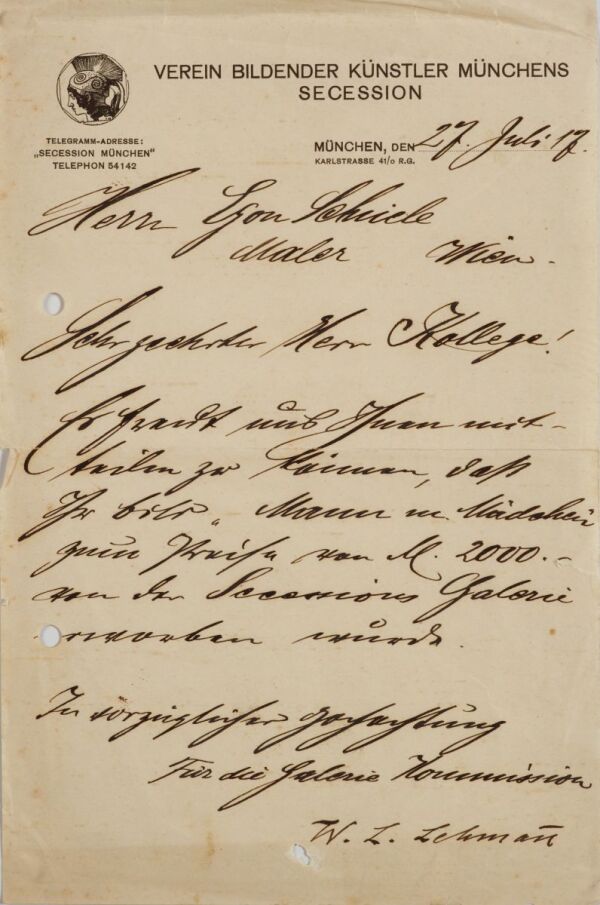 VEREIN BILDENDER KÜNSTLER MÜNCHENS
SECESSION
TELEGRAMM-ADRESSE:
„SECESSION MÜNCHEN"
TELEPHON 54142
MÜNCHEN, DEN 27. Juli 17.
KARLSTRASSE 41/0 R.G.
Herrn Egon Schiele
Maler Wien.
Sehr geehrter Herr Kollege!
Es freut uns Ihnen mit-
teilen zu können, daß
Ihr Bild „Mann u. Mädchen
zum Preise von M. 2000.-
von der Secessions Galerie
erworben wurde.
In vorzüglicher Hochachtung
Für die Galerie Kommission
W. L. Lehmann